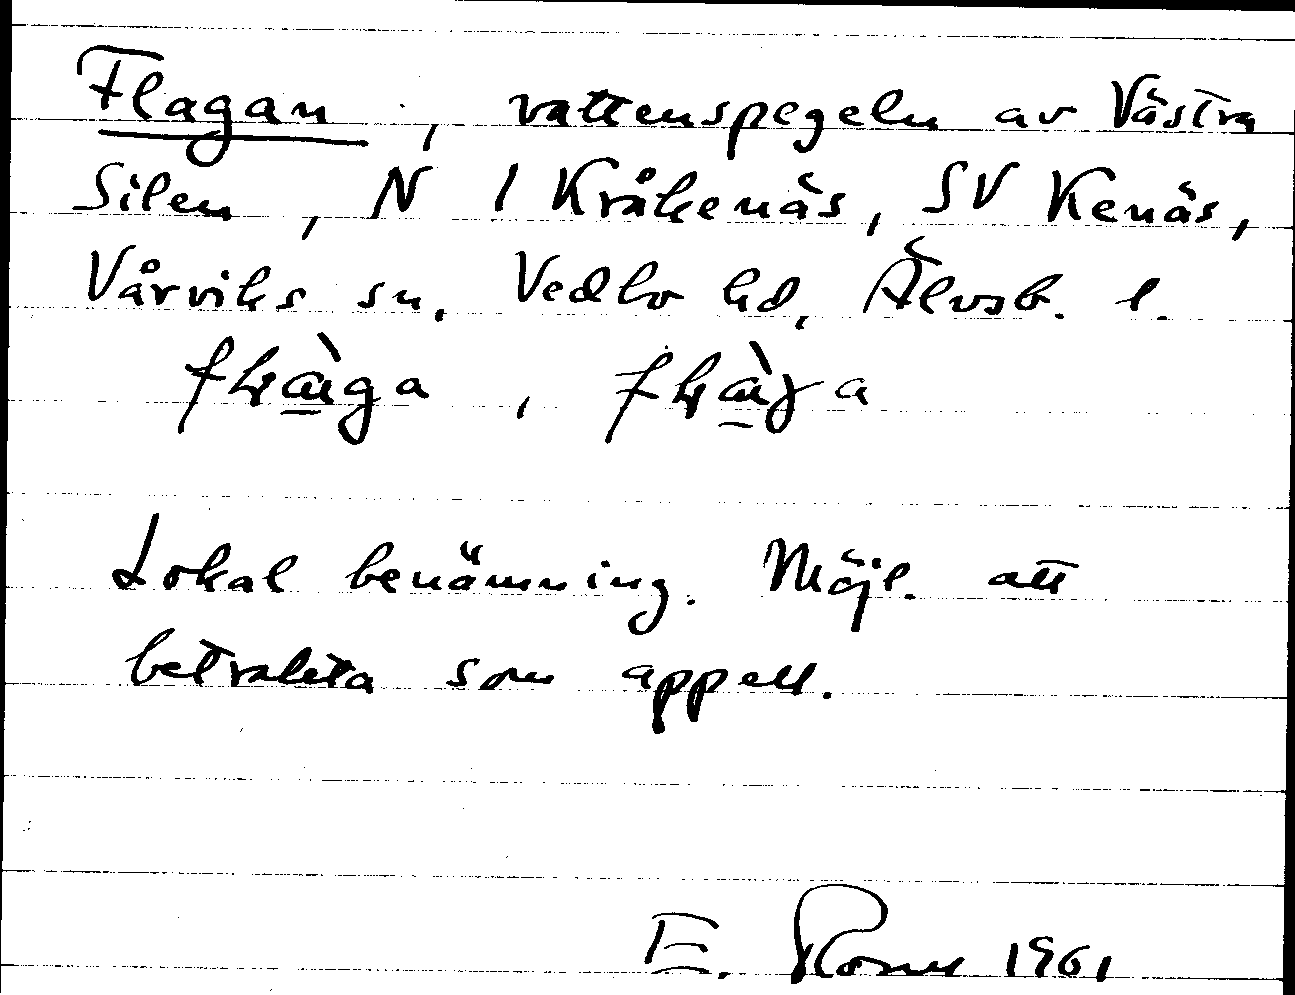 Flagan, vattenspegeln av Västra
Silen, N / Kråkenäs, SV Kenäs,
Vårviks sn, Vedbo hd, Älvsb. l.
Lokal benämning. Möjl. att
betrakta som appell.
E. 1961